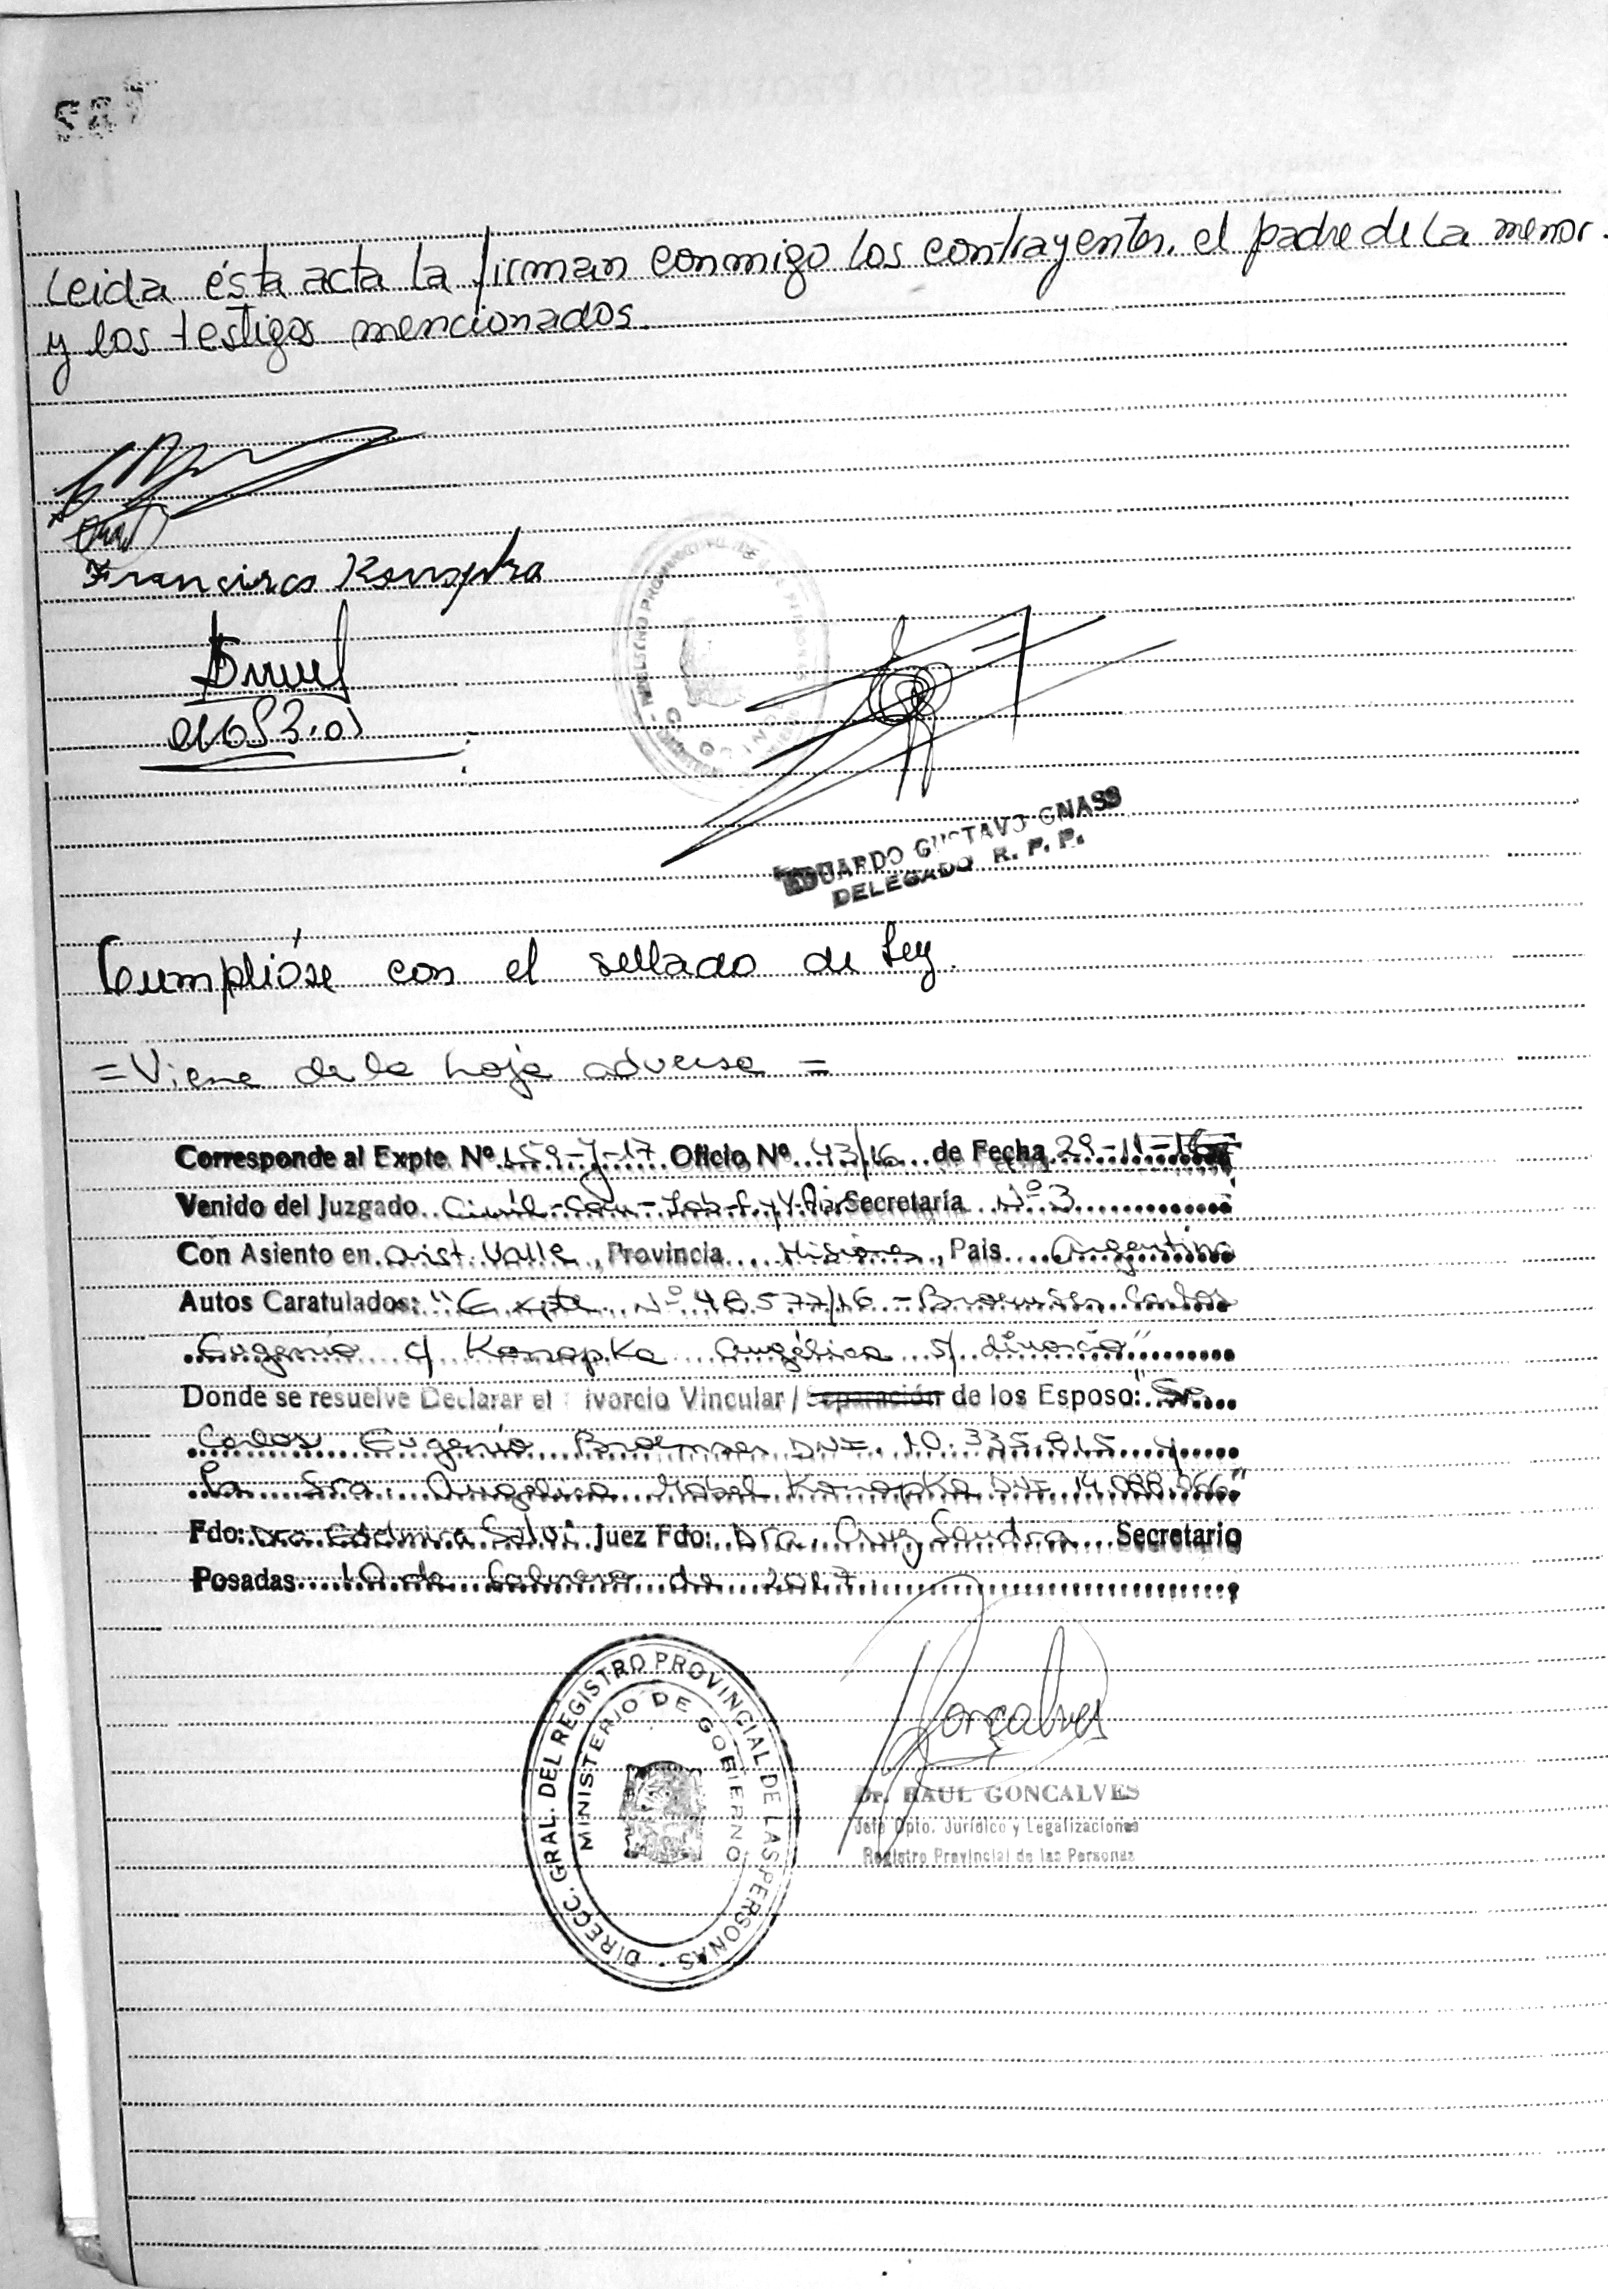 Leida ésta acta la firman conmigo los contrayentes, el padre de la menor.
y los testigos mencionados.
Francisco Konopka
EDUARDO GUSTAVO GNASS
DELEGADO R. P. P.
Cumplióse con el sellado de Ley.
= Viene de la hoja adversa =
Corresponde al Expte Nº 159-J-17 Oficio Nº 43/16 de Fecha 29-11-16
Venido del Juzgado Civil-Com-Lab-F y V. Secretaría Nº 3
Con Asiento en Arist. Valle, Provincia Misiones, Pais Argentina
Autos Caratulados: "Expte. Nº 48.577/16 - Broemser Carlos
Eugenio c/ Konopka Angélica s/ divorcio"
Donde se resuelve Declarar el ivorcio Vincular / Separación de los Esposo: "Sr.
Carlos Eugenio Broemser DNI. 10.335.815 y
la Sra. Angelica Mabel Konopka DNI 14.088.066"
Fdo: Dra. Edelmira Salvi Juez Fdo: Dra. Cruz Sandra Secretario
Posadas 10 de Febrero de 2017
DIRECC. GRAL. DEL REGISTRO PROVINCIAL DE LAS PERSONAS
MINISTERIO DE GOBIERNO
Gonçalves
Dr. RAUL GONCALVES
Jefe Dpto. Jurídico y Legalizaciones
Registro Provincial de las Personas